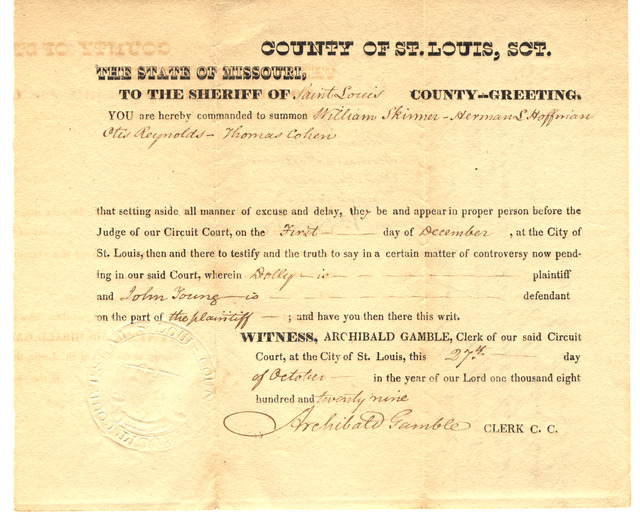 COUNTY OF ST. LOUIS, SCT.
THE STATE OF MISSOURI,
TO THE SHERIFF OF Saint Louis COUNTY—GREETING.
YOU are hereby commanded to summon William Skinner - Herman L Hoffman
Otis Reynolds - Thomas Cohen
that setting aside all manner of excuse and delay, they be and appear in proper person before the
Judge of our Circuit Court, on the First day of December, at the City of
St. Louis, then and there to testify and the truth to say in a certain matter of controversy now pend-
ing in our said Court, wherein Dolly is plaintiff
and John Young is defendant
on the part of the plaintiff ; and have you then there this writ.
WITNESS, ARCHIBALD GAMBLE, Clerk of our said Circuit
Court, at the City of St. Louis, this 27th day
of October in the year of our Lord one thousand eight
hundred and twenty nine
Archibald Gamble CLERK C. C.